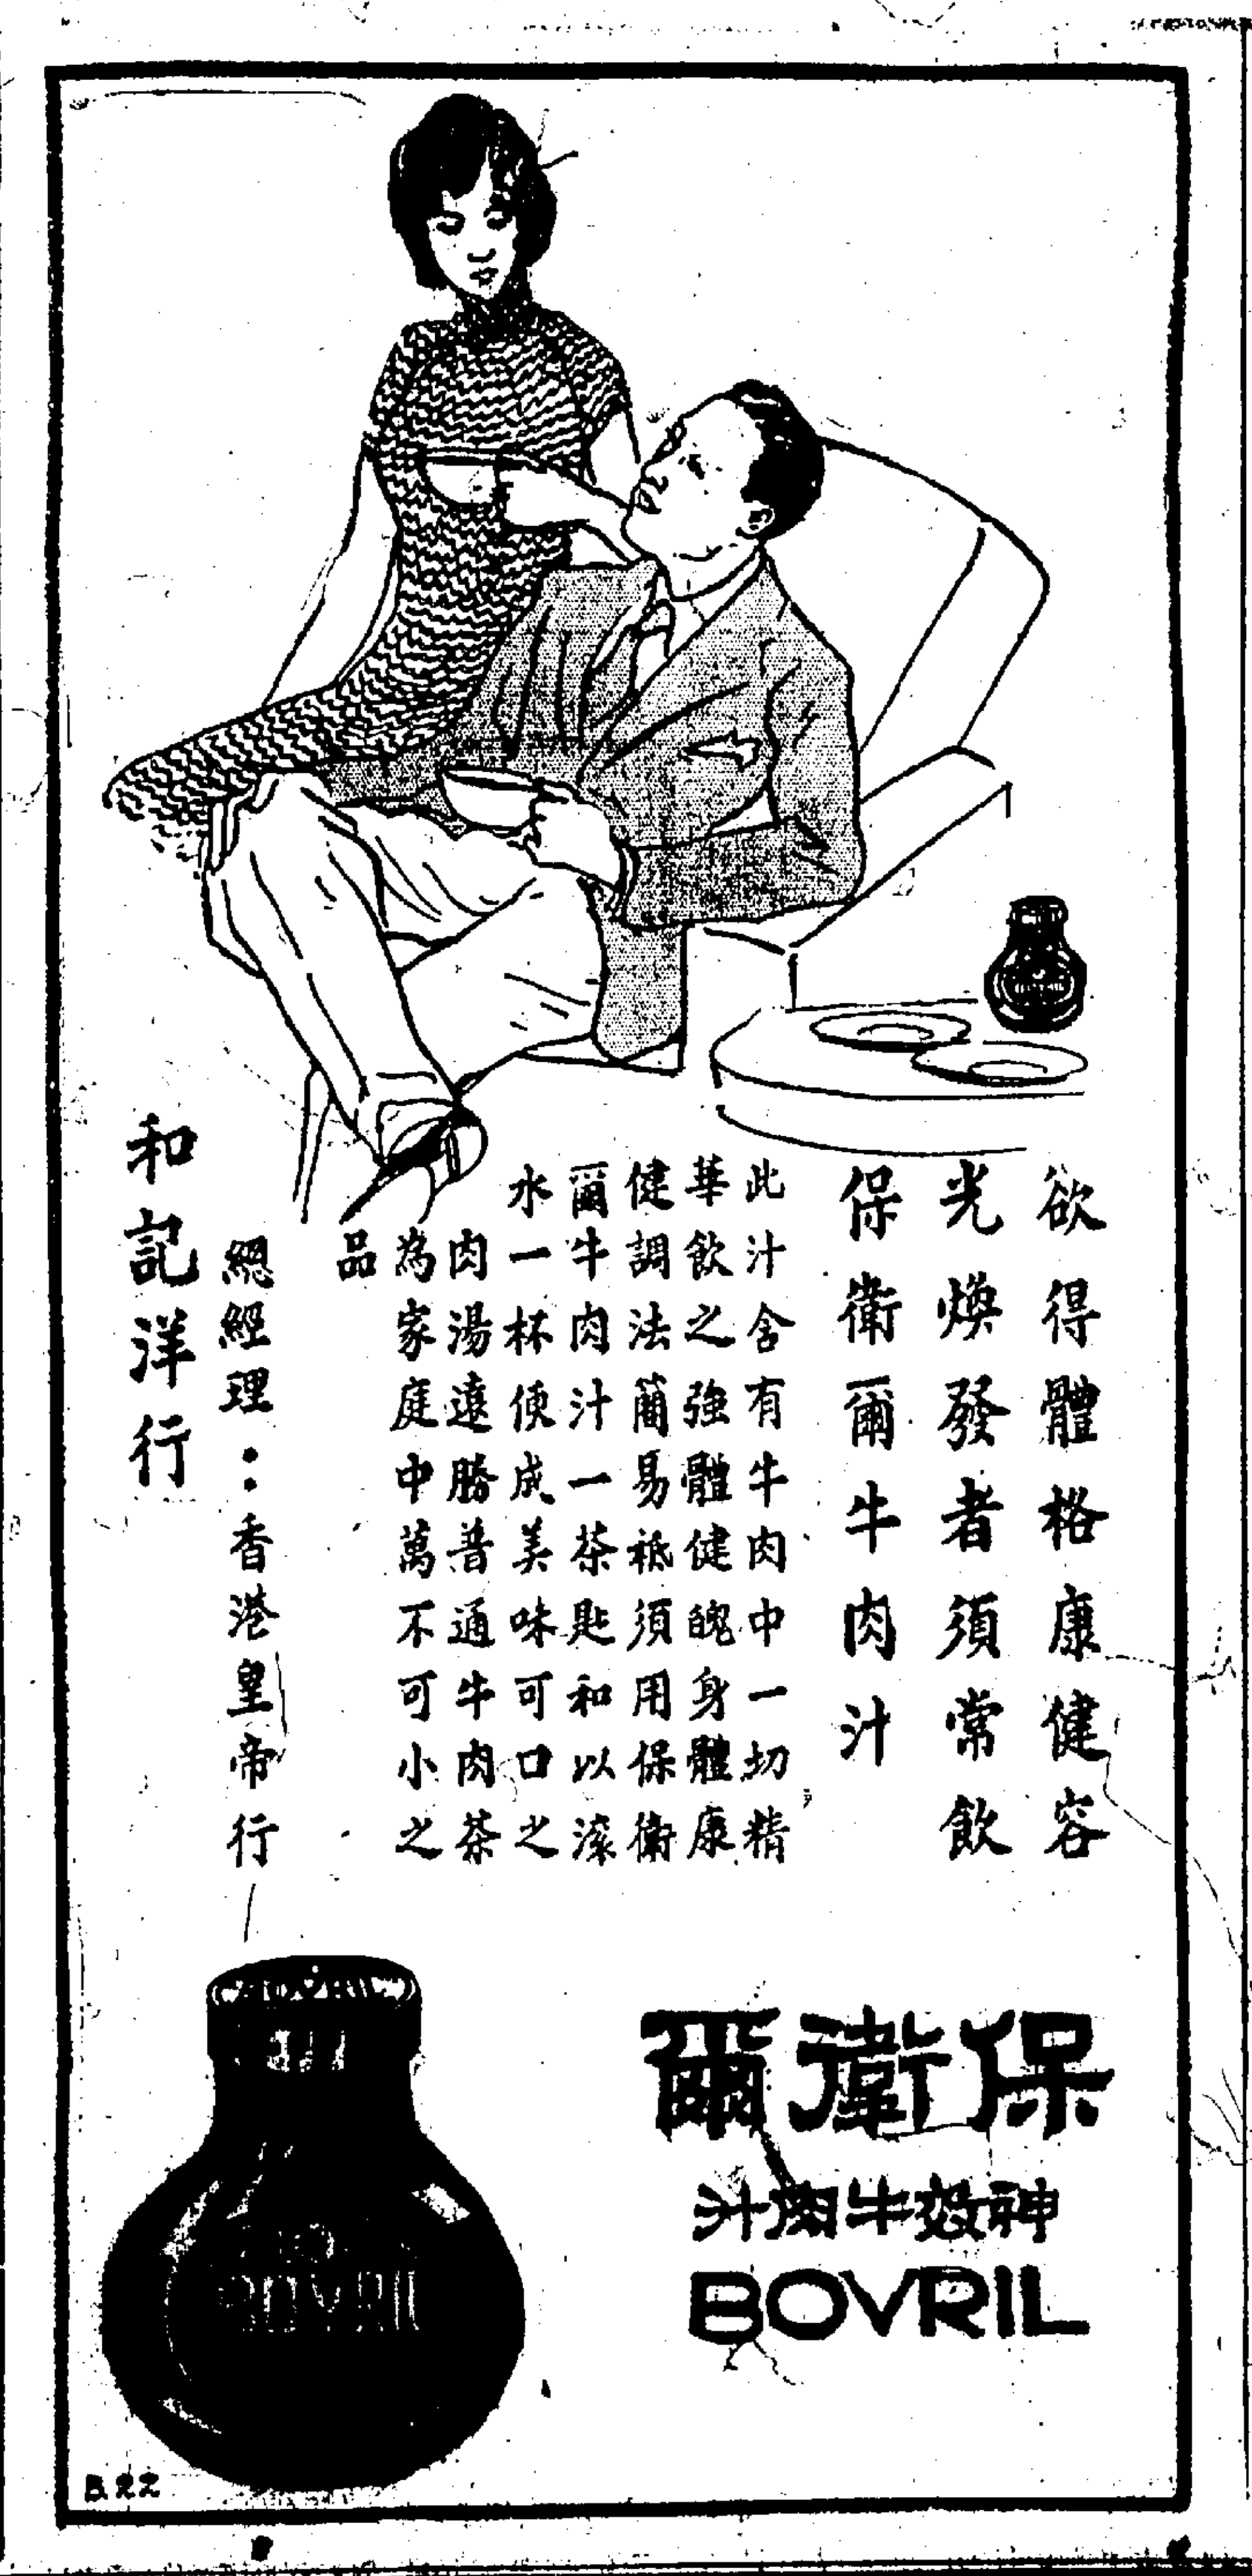 欲得體格康健容
光煥發者須常飲
保衛爾牛肉汁
此汁含有牛肉中一切精
華飲之強體健魄身體康
健調法簡易祗須用保衛
爾牛肉汁一茶匙和以滾
水一杯便成美味可口之
肉湯遠勝普通牛肉茶
為家庭中萬不可小之
品
總經理：香港皇帝行
和記洋行
保衛爾
神效牛肉汁
BOVRIL
BOVRIL
B.22